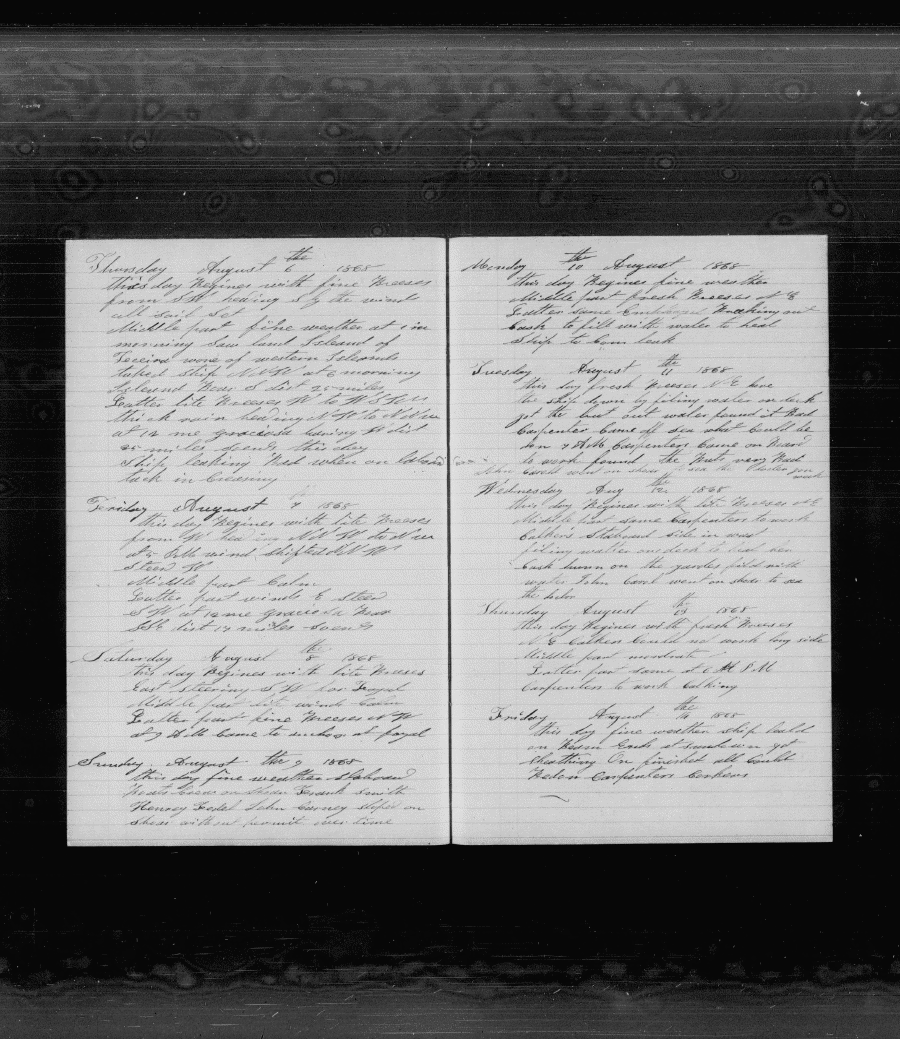 Thursday August 6 the 1868
this day Begines with fine Breeses
from SW heading S by the wind
all sail set
Middle part fine weather at 1 in
morning saw land Island of
Teceira wone of western Islands
taked ship NNW at 6 morning
Island Bore S dist 25 miles
Latter lite Breeses W to WSW
thick rain heading NW to NNW
at 12 me graciosa baring W dist
25 miles soends this day
Ship leaking Bad when on
tack in Creesing
Friday August 7 1868
this day Begines with lite Breeses
from W heading NNW to NW
at 5 PM wind shifted NNW
steerd W
Middle part Calm
Latter part winds E steerd
SW at 12 me graciosa Bore
SSE dist 14 miles soends
Saturday August 8 the 1868
this day Begines with lite Breeses
East steering SW for Fayal
Middle part lite winds Calm
Latter part fine Breeses NW
at 9 AM Came to anchor at fayal
Sunday August the 9 1868
this day fine weather Starboard
Boats Crew on Shore Frank Smith
Henrey John Carney sliped on
shore without permit over time
Monday 10 th August 1868
this day Begines fine weather
Middle part fresh Breeses at E
Latter same Breaking out
Cask to fill with water to heal
Ship to Com leak
Tuesday August 11 th 1868
this day fresh Breeses NE hove
the ship down by filing water on deck
got the but out water found it Bad
Carpenter Came off sea what Could be
don 7 AM Carpenters Came on Board
to work found the Buts very Bad
John Carel went on shore to sea the
work
Wednesday Aug 12 th 1868
this day Begines with lite Breeses at E
Middle part same Carpenters to work
Calkers Starboard side in wast
filing watter on deck to heal her
Cask hunn on the yardes fild with
water John Carel went on shore to sea
the
Thursday August 13 th 1868
this day Begines with fresh Breeses
NE Calkers Could not work long side
Middle part modrate
Latter part same at 6 PM
Carpenters to work Calking
Friday August 14 the 1868
this day fine weather ship heald
on Beam Ends at sundown got
Sheathing On finished all Caulk
Bedon Carpenters